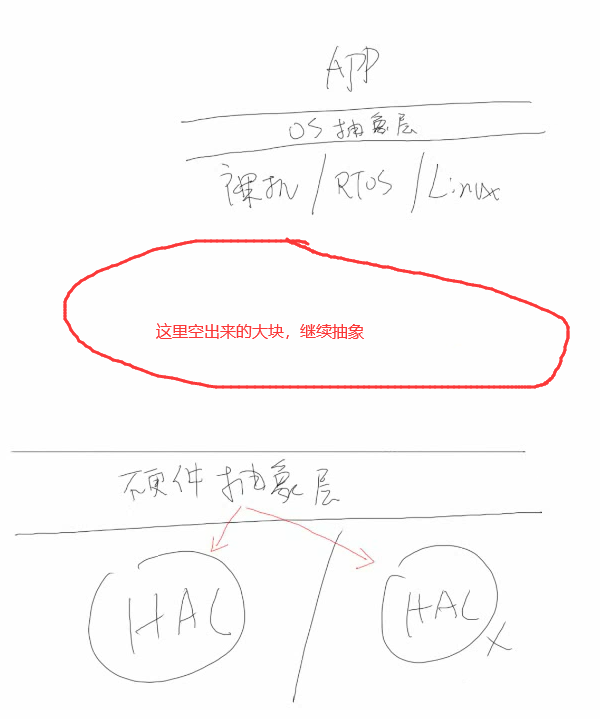 APP
OS 抽象层
裸机 / RTOS / Linux
这里空出来的大块，继续抽象
硬件抽象层
HAL / HAL x